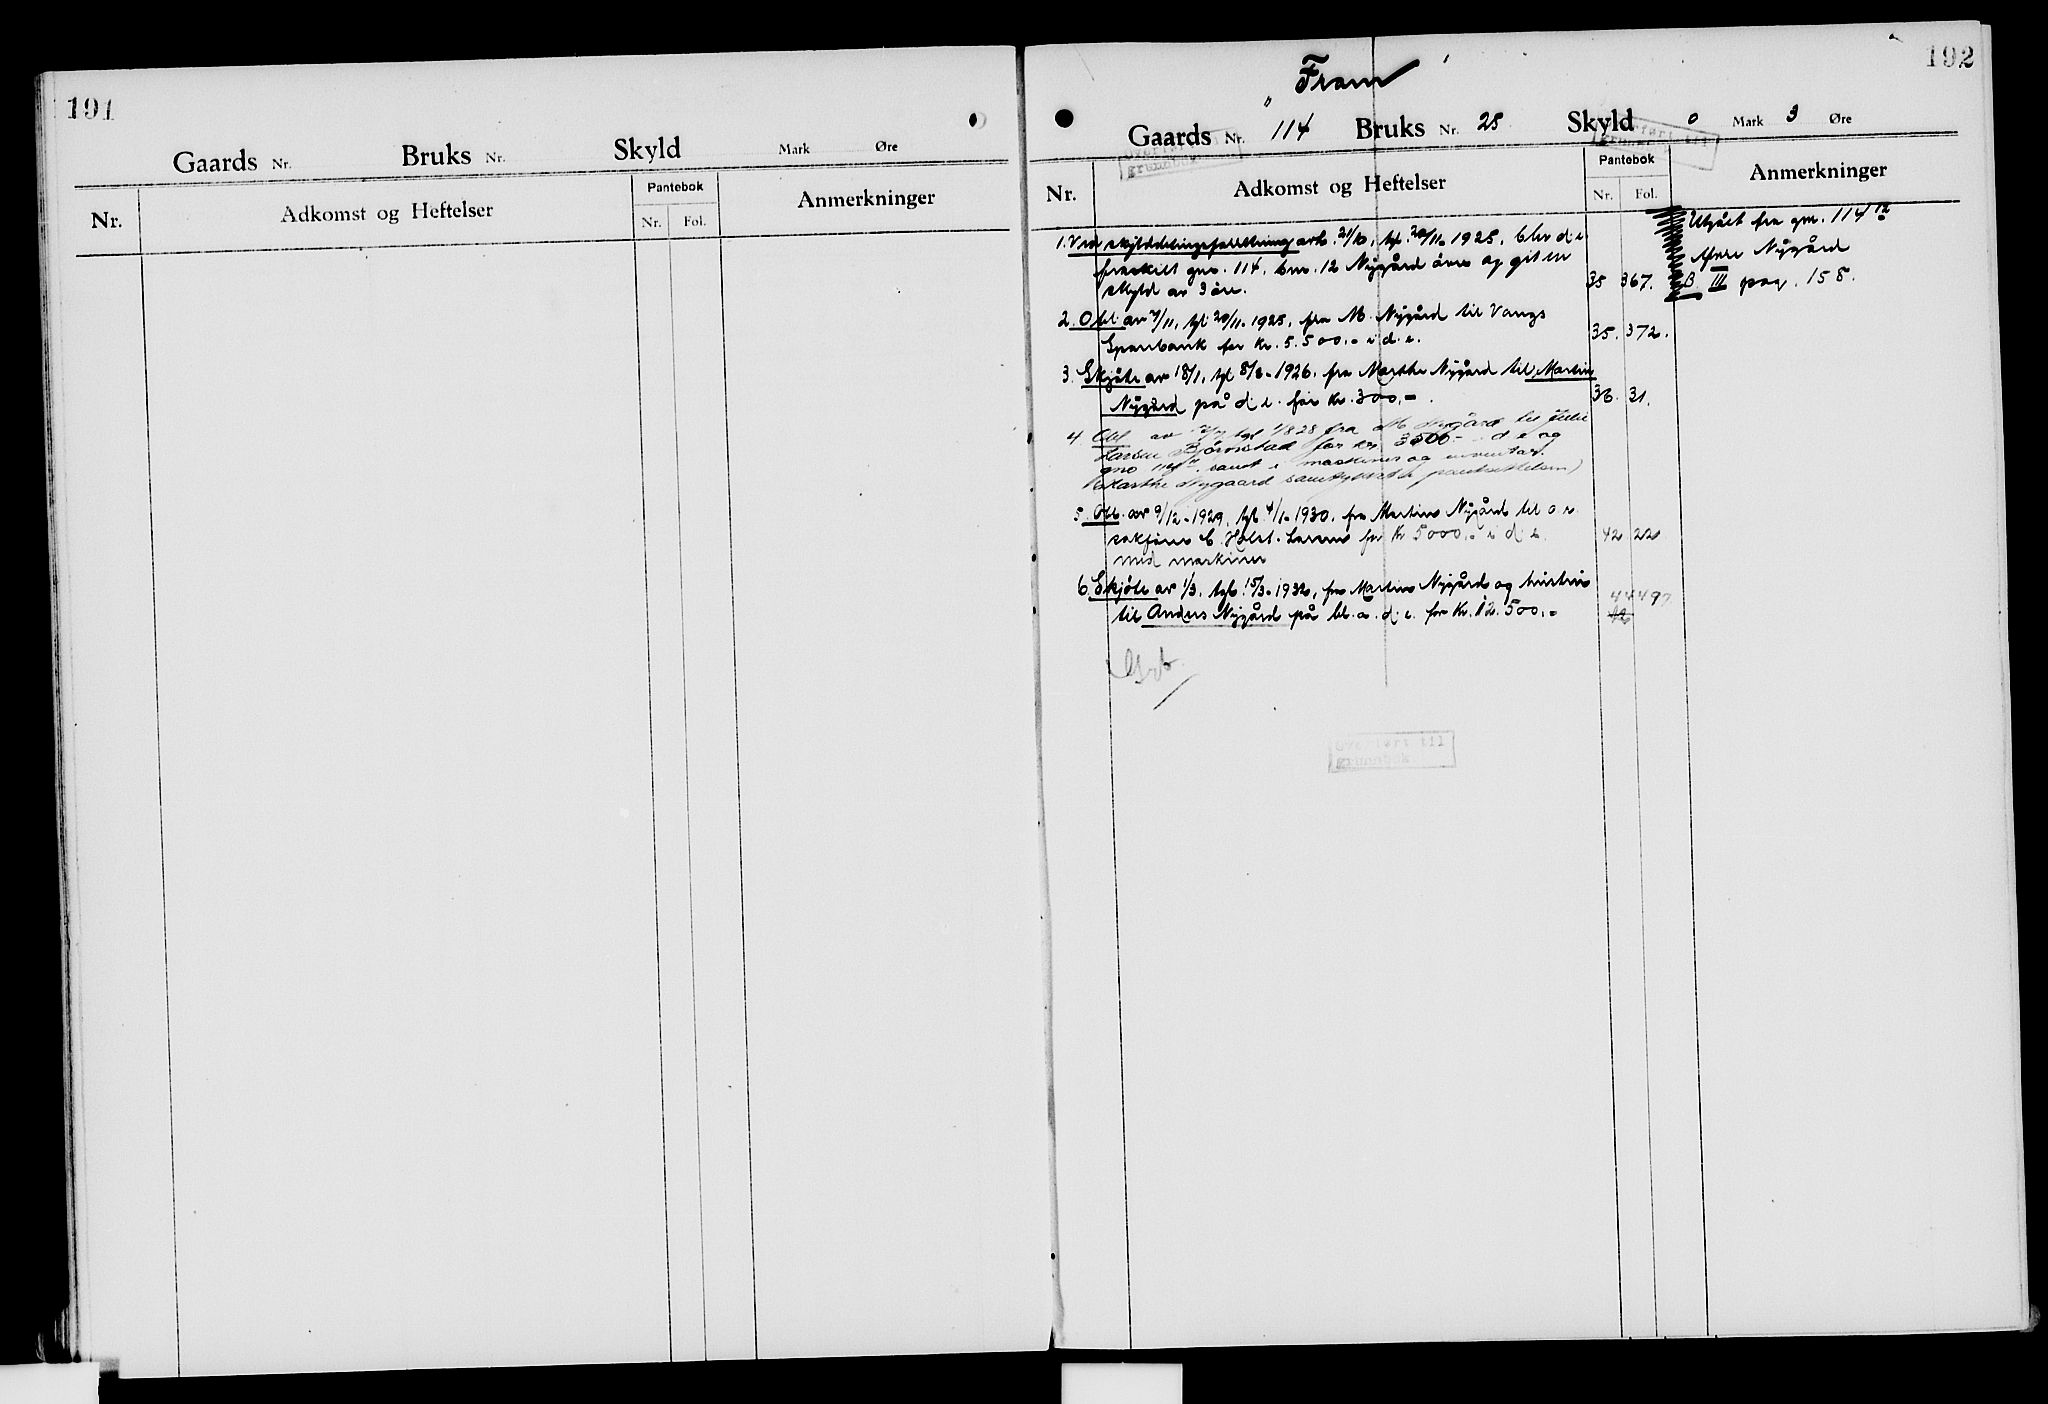 191
Gaards Nr. Bruks Nr. Skyld Mark Øre
Nr. Adkomst og Heftelser Pantebok Nr. Fol. Anmerkninger
192
Fram
Gaards Nr. 114 Bruks Nr. 28 Skyld 0 Mark 3 Øre
Overført til
grunnbok
Overført til
grunnbok
Nr. Adkomst og Heftelser Pantebok Nr. Fol. Anmerkninger
1. Ved skylddelingsforretning avh. 21/10, tgl. 20/11 1925, blev d. e.
fraskilt gnr. 114, bnr. 12 Nygård övre og git en
skyld av 3 öre. 35 367.
Utgået fra gnr. 114 12
Øvre Nygård
B. III pag. 158.
2. Obl. av 7/11, tgl. 20/11. 1925, fra M. Nygård til Vangs
Sparebank for kr. 5.500.- i d. e. 35. 372.
3. Skjöte av 18/1, tgl. 8/2. 1926, fra Marthe Nygård til Martin
Nygård på d. e. for kr. 300,-. 36. 31.
4. Obl av tgl 1/8 28 fra M Nygård til Julie
Larsen Bjørnstad for kr 3500- i d e og
gno 114 samt i maskiner og inventar.
(Marthe Nygaard samtykket i pantsettelsen)
5. Obl. av 9/12. 1929, tgl. 4/1. 1930, fra Martin Nygård til o. r.
sakfører C. Holst-Larsen for kr 5000,- i d. e. 42 220
med maskiner
6. Skjöte av 1/3, tgl. 15/3. 1932, fra Martin Nygård og hustru 44 497
til Anders Nygård på bl. a. d. e. for kr. 12.500.-
Overført til
grunnbok